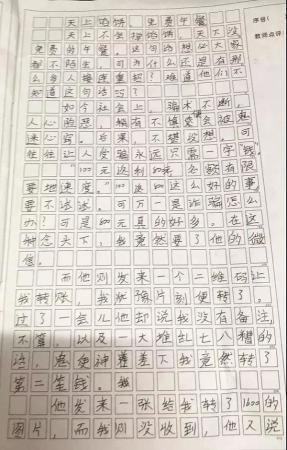 序号(
教师点评(
天上馅饼、免费午餐
天上不会掉馅饼，天下没
免费的午餐。这句话想必大家
都不陌生，可为什么还是有那
么多人接连重蹈？难道他们不
知道这句话吗？
如今社会上，骗术不断，
人心险恶，稍有不慎便会被鬼
迷心窍。后果，不堪设想。可
往往让人受骗永远只需一字"钱"
"100元返利500元，名额有限
要地速度。"100返500这么好的事
要不试试。可万一是诈骗怎么
办？可是500元真的好多。在这
种念头下，我竟然要了他的微
信。
而他则发来一个二维码让
我转账，我犹豫片刻便转了。
过了一会儿他却说我没有备注，
不算。以及一大堆乱七八糟的
话，鬼使神差差下我竟然转了
第二笔钱。我
他发来一张给我转了1600的
图片，而我则没收到，他又说